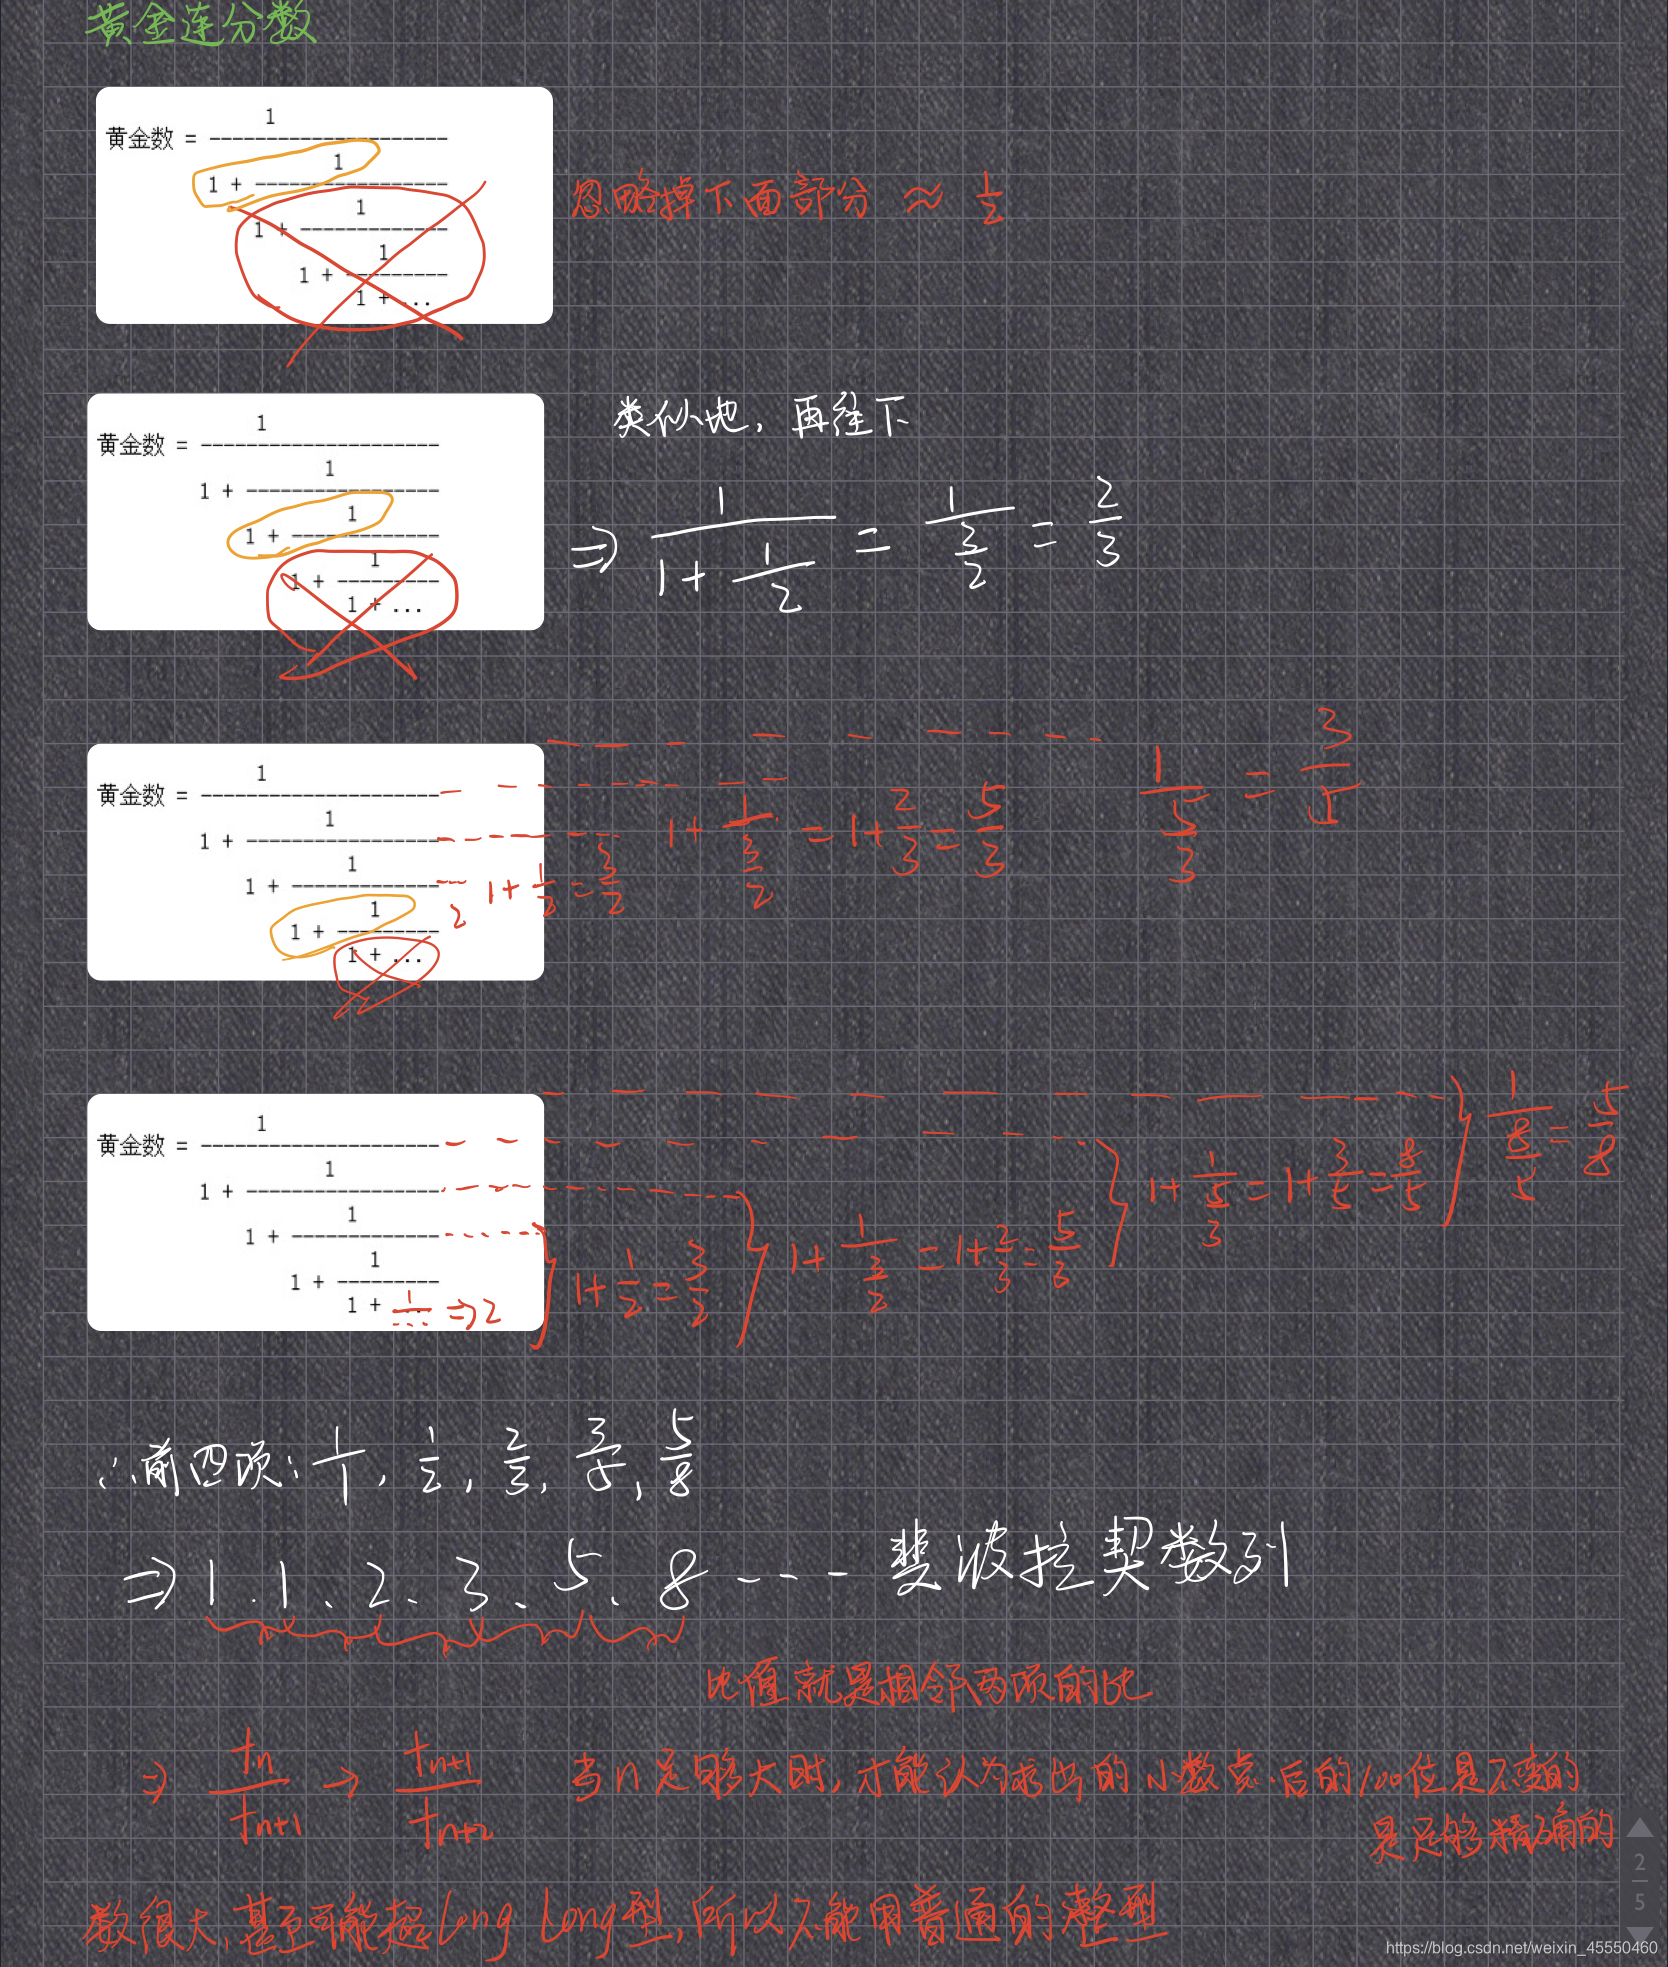 黄金连分数
1
黄金数 = ---------------------
1
1 + -----------------
1
1 + -------------
1
1 + ---------
1 + ...
忽略掉下面部分 ≈ 1/2
1
黄金数 = ---------------------
1
1 + -----------------
1
1 + -------------
1
1 + ---------
1 + ...
类似地, 再往下
⇒ 1/(1+1/2) = 1/(3/2) = 2/3
1
黄金数 = ---------------------
1
1 + -----------------
1
1 + -------------
1
1 + ---------
1 + ...
2
1+1/2=3/2
1+1/(3/2)=1+2/3=5/3
1/(5/3)=3/5
1
黄金数 = ---------------------
1
1 + -----------------
1
1 + -------------
1
1 + ---------
1 + 1/... ⇒2
1+1/2=3/2
1+1/(3/2)=1+2/3=5/3
1+1/(5/3)=1+3/5=8/5
1/(8/5)=5/8
∴前四项: 1/1, 1/2, 2/3, 3/5, 5/8
⇒ 1.1、2、3、5、8 --- 斐波拉契数列
比值就是相邻两项的比
⇒ fn/fn+1 → fn+1/fn+2 当n足够大时, 才能认为求出的小数点后的100位是不变的
是足够精确的
数很大, 甚至可能超long long型, 所以不能用普通的整型
2
5
https://blog.csdn.net/weixin_45550460